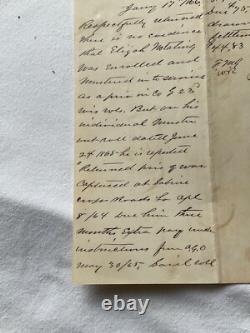 Jany 17
Respectfully returned
There is no evidence
that Elijah
was enrolled and
mustered into service
as a priv in Co G 23
wis vols. But on his
individual Muster
out roll dated June
24 1865 he is reported
Returned pris of war
Captured at Sabine
cross Roads La apl
8/64 due him three
months Extra pay under
instructions from A.G.O
may 30/65 Said roll
44.83